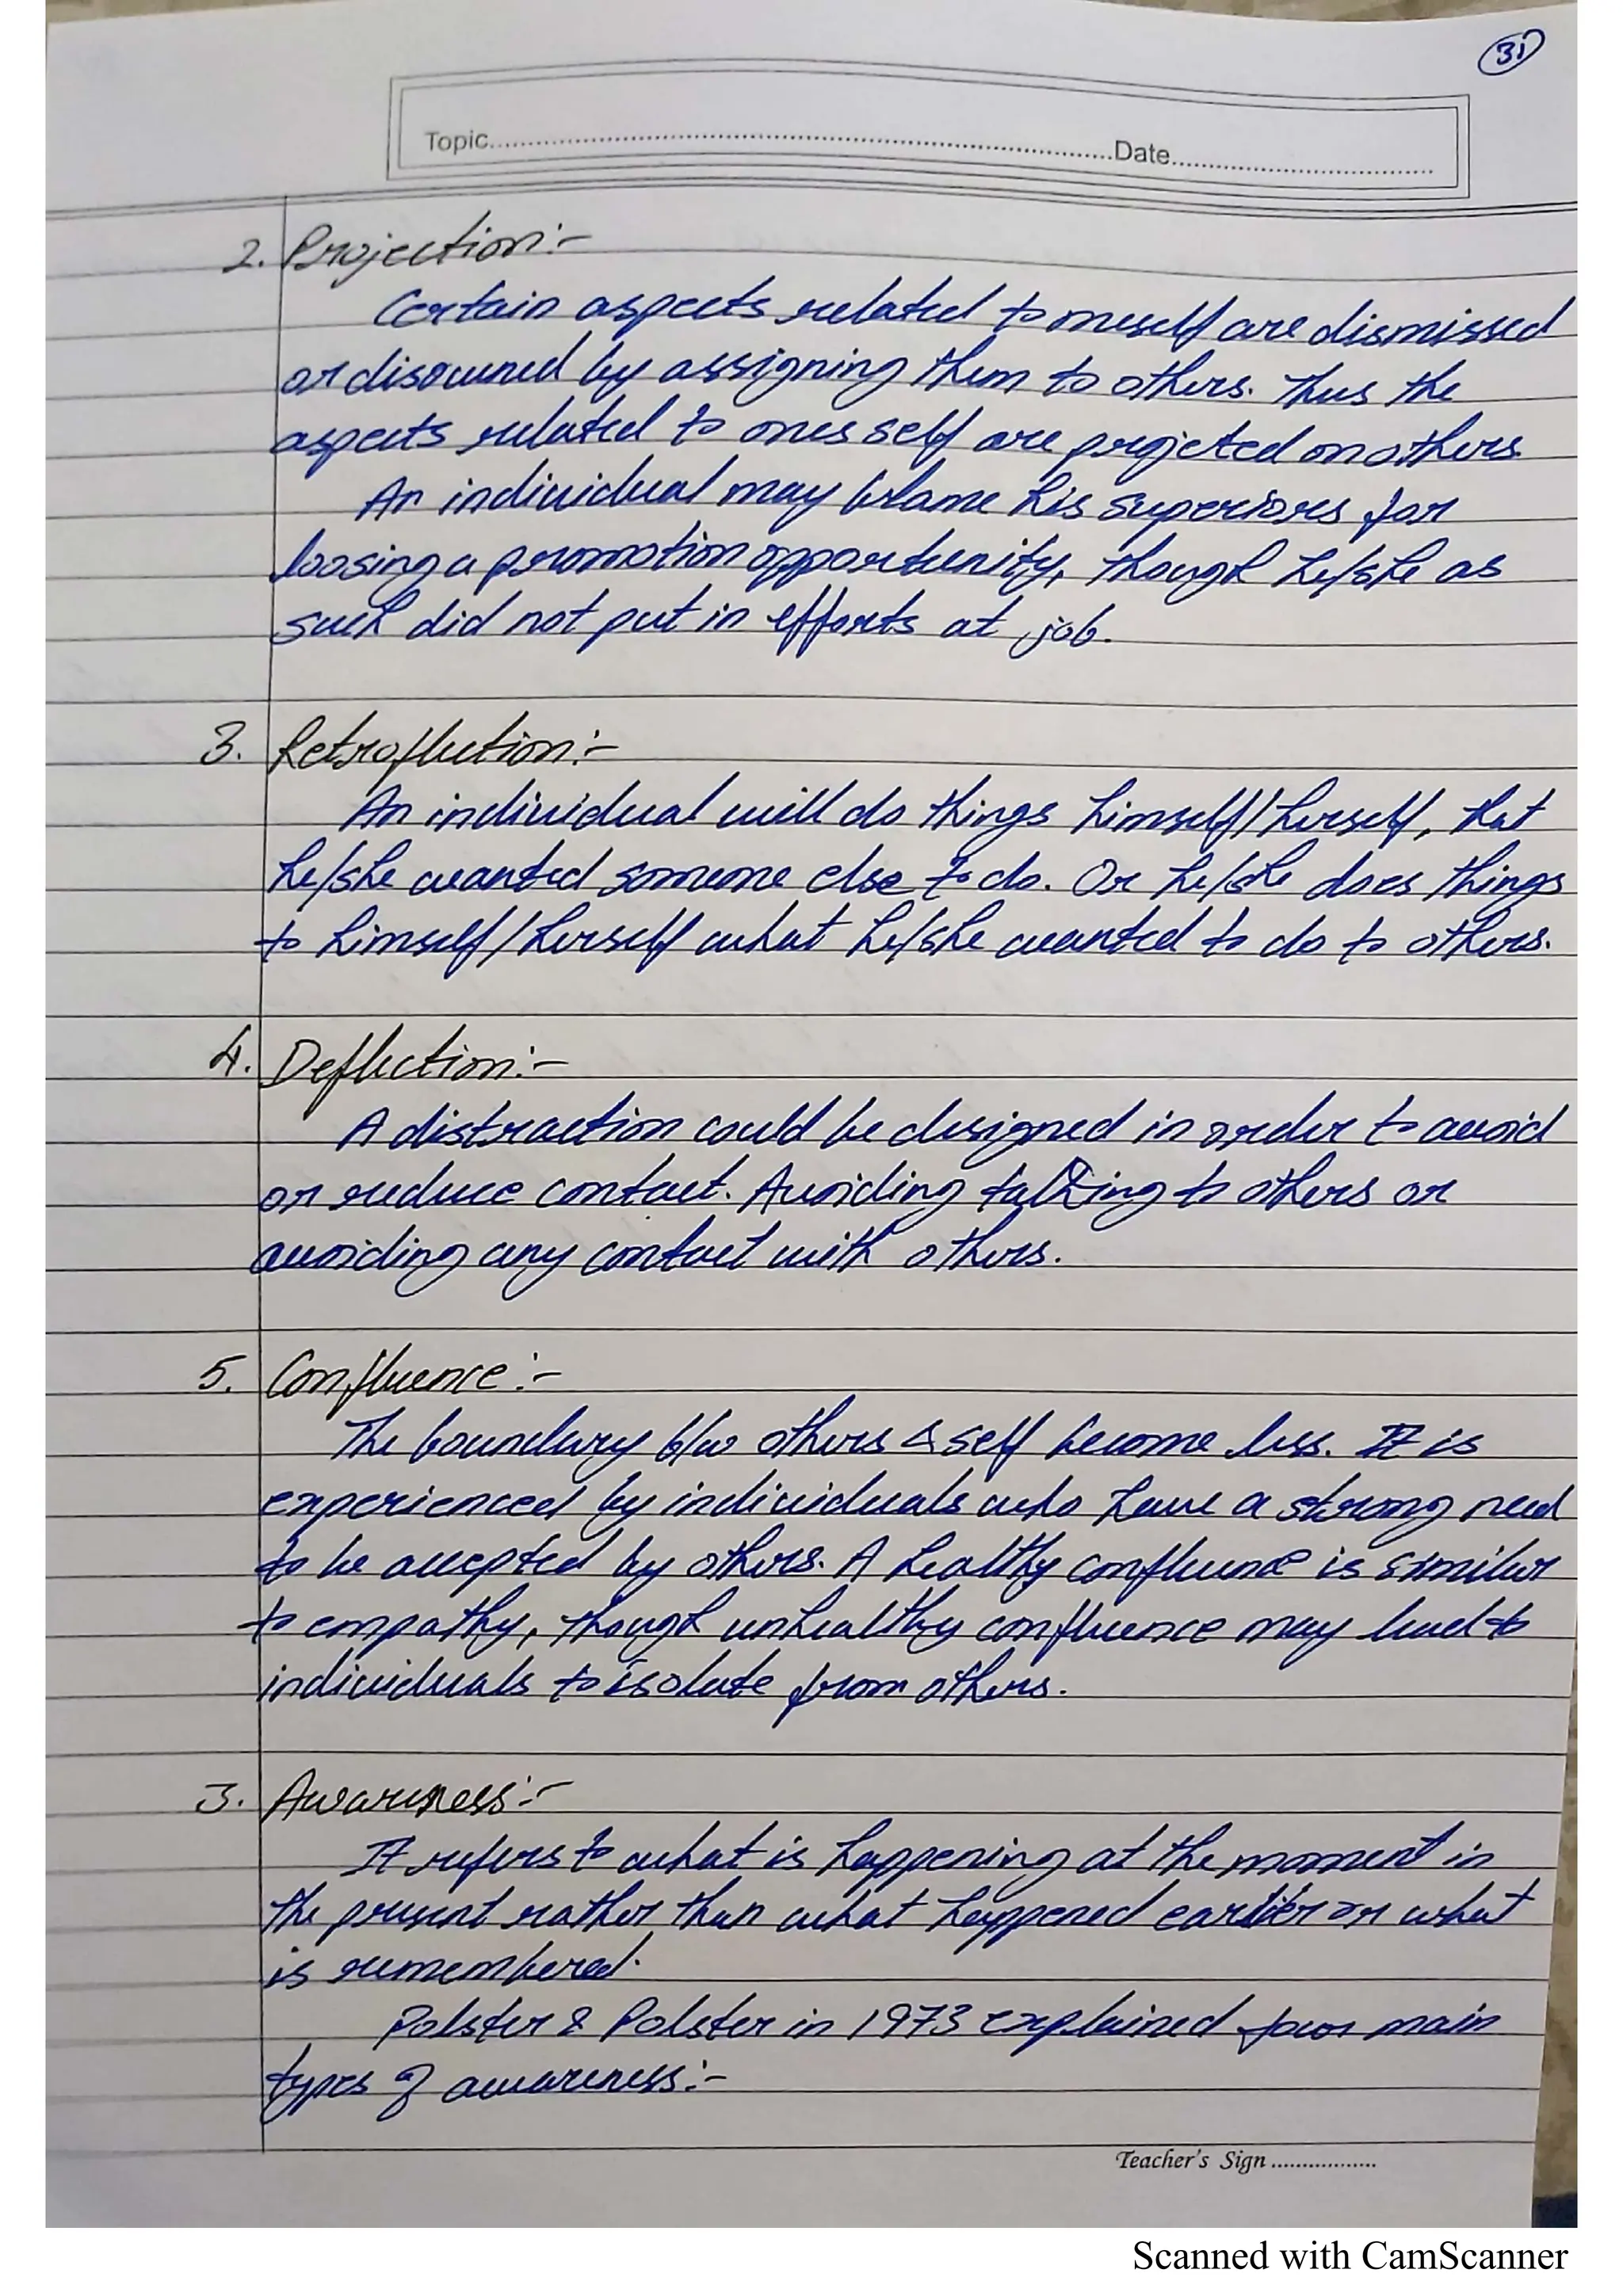 31
Topic..........Date..........
2. Projection:-
Certain aspects related to oneself are dismissed
or disowned by assigning them to others. Thus the
aspects related to ones self are projected on others.
An individual may blame his superiors for
loosing a promotion opportunity, though he/she as
such did not put in efforts at job.
3. Retroflection:-
An individual will do things himself/herself, that
he/she wanted someone else to do. Or he/she does things
to himself/herself what he/she wanted to do to others.
4. Deflection:-
A distraction could be designed in order to avoid
or reduce contact. Avoiding talking to others or
avoiding any contact with others.
5. Confluence:-
The boundary b/w others & self become less. It is
experienced by individuals who have a strong need
to be accepted by others. A healthy confluence is similar
to empathy, though unhealthy confluence may lead to
individuals to isolate from others.
3. Awareness:-
It refers to what is happening at the moment in
the present rather than what happened earlier or what
is remembered.
Polster & Polster in 1973 explained four main
types of awareness:-
Teacher's Sign..........
Scanned with CamScanner